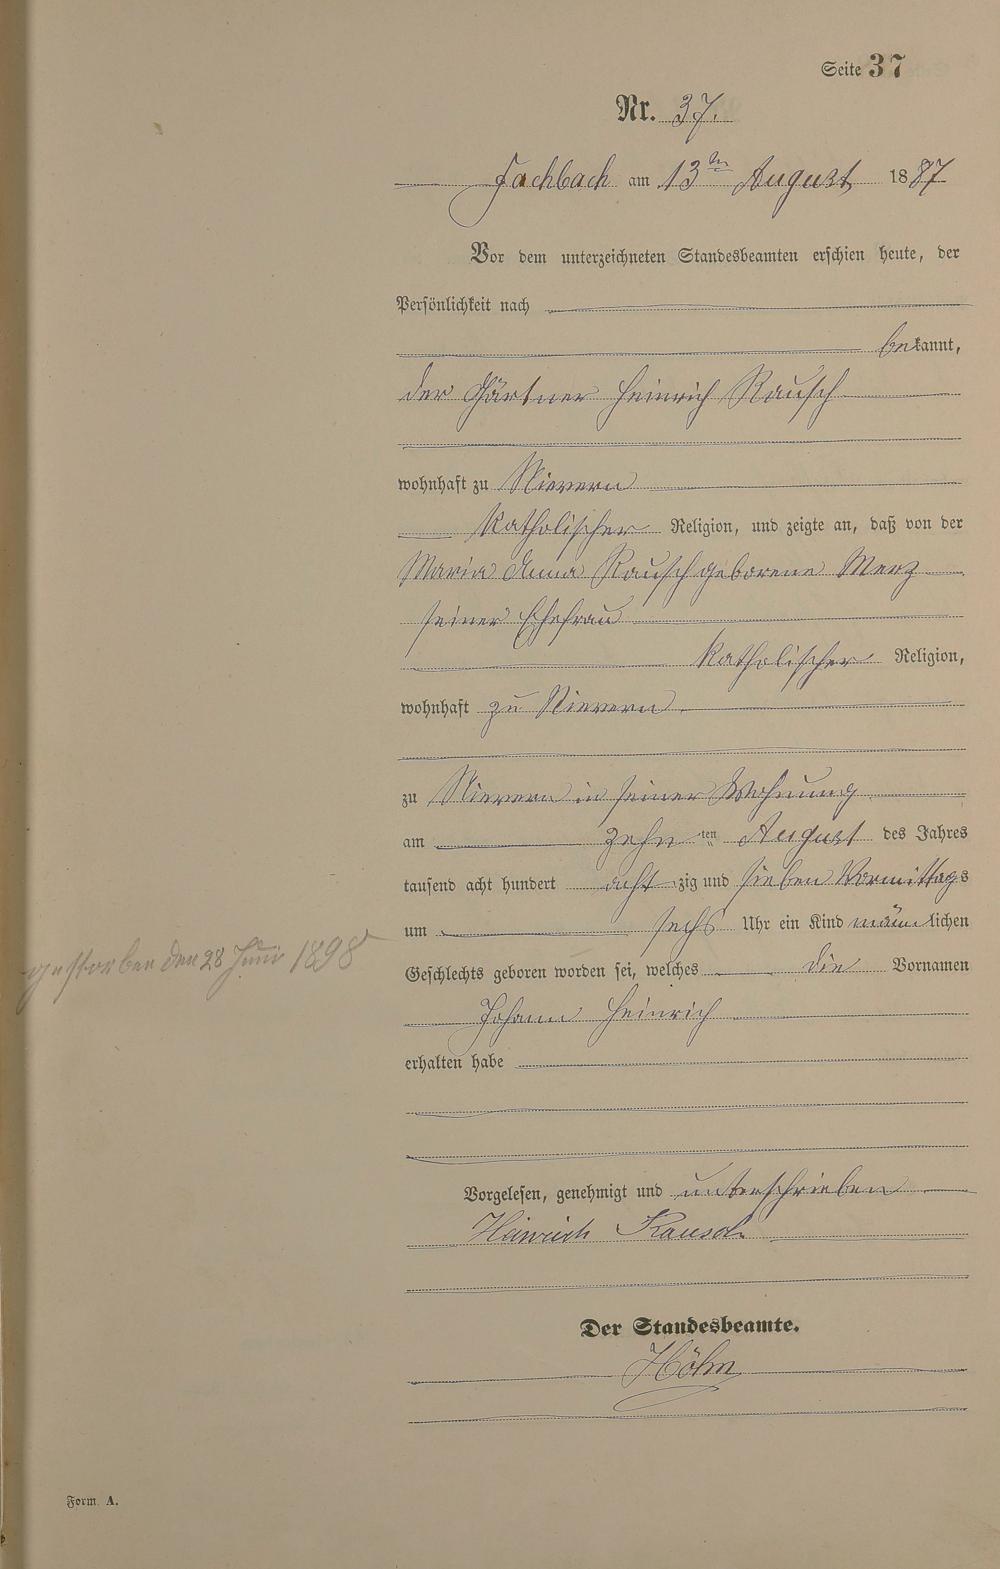 Seite 37
Nr. 37.
Fachbach am 13ten August 1887
Vor dem unterzeichneten Standesbeamten erschien heute, der
Persönlichkeit nach
bekannt,
der Gärtner Heinrich Rausch
wohnhaft zu Nievern
Katholischer Religion, und zeigte an, daß von der
Maria Anna Rausch geborene Merz
seiner Ehefrau
Katholischer Religion,
wohnhaft zu Nievern
zu Nievern in seiner Wohnung
am zehn ten August des Jahres
tausend acht hundert acht zig und sieben Vormittags
um sechs Uhr ein Kind männlichen
gestorben den 28 Juni 1898
Geschlechts geboren worden sei, welches die Vornamen
Johann Heinrich
erhalten habe
Vorgelesen, genehmigt und unterschrieben
Heinrich Rausch
Der Standesbeamte.
Höhn
Form. A.